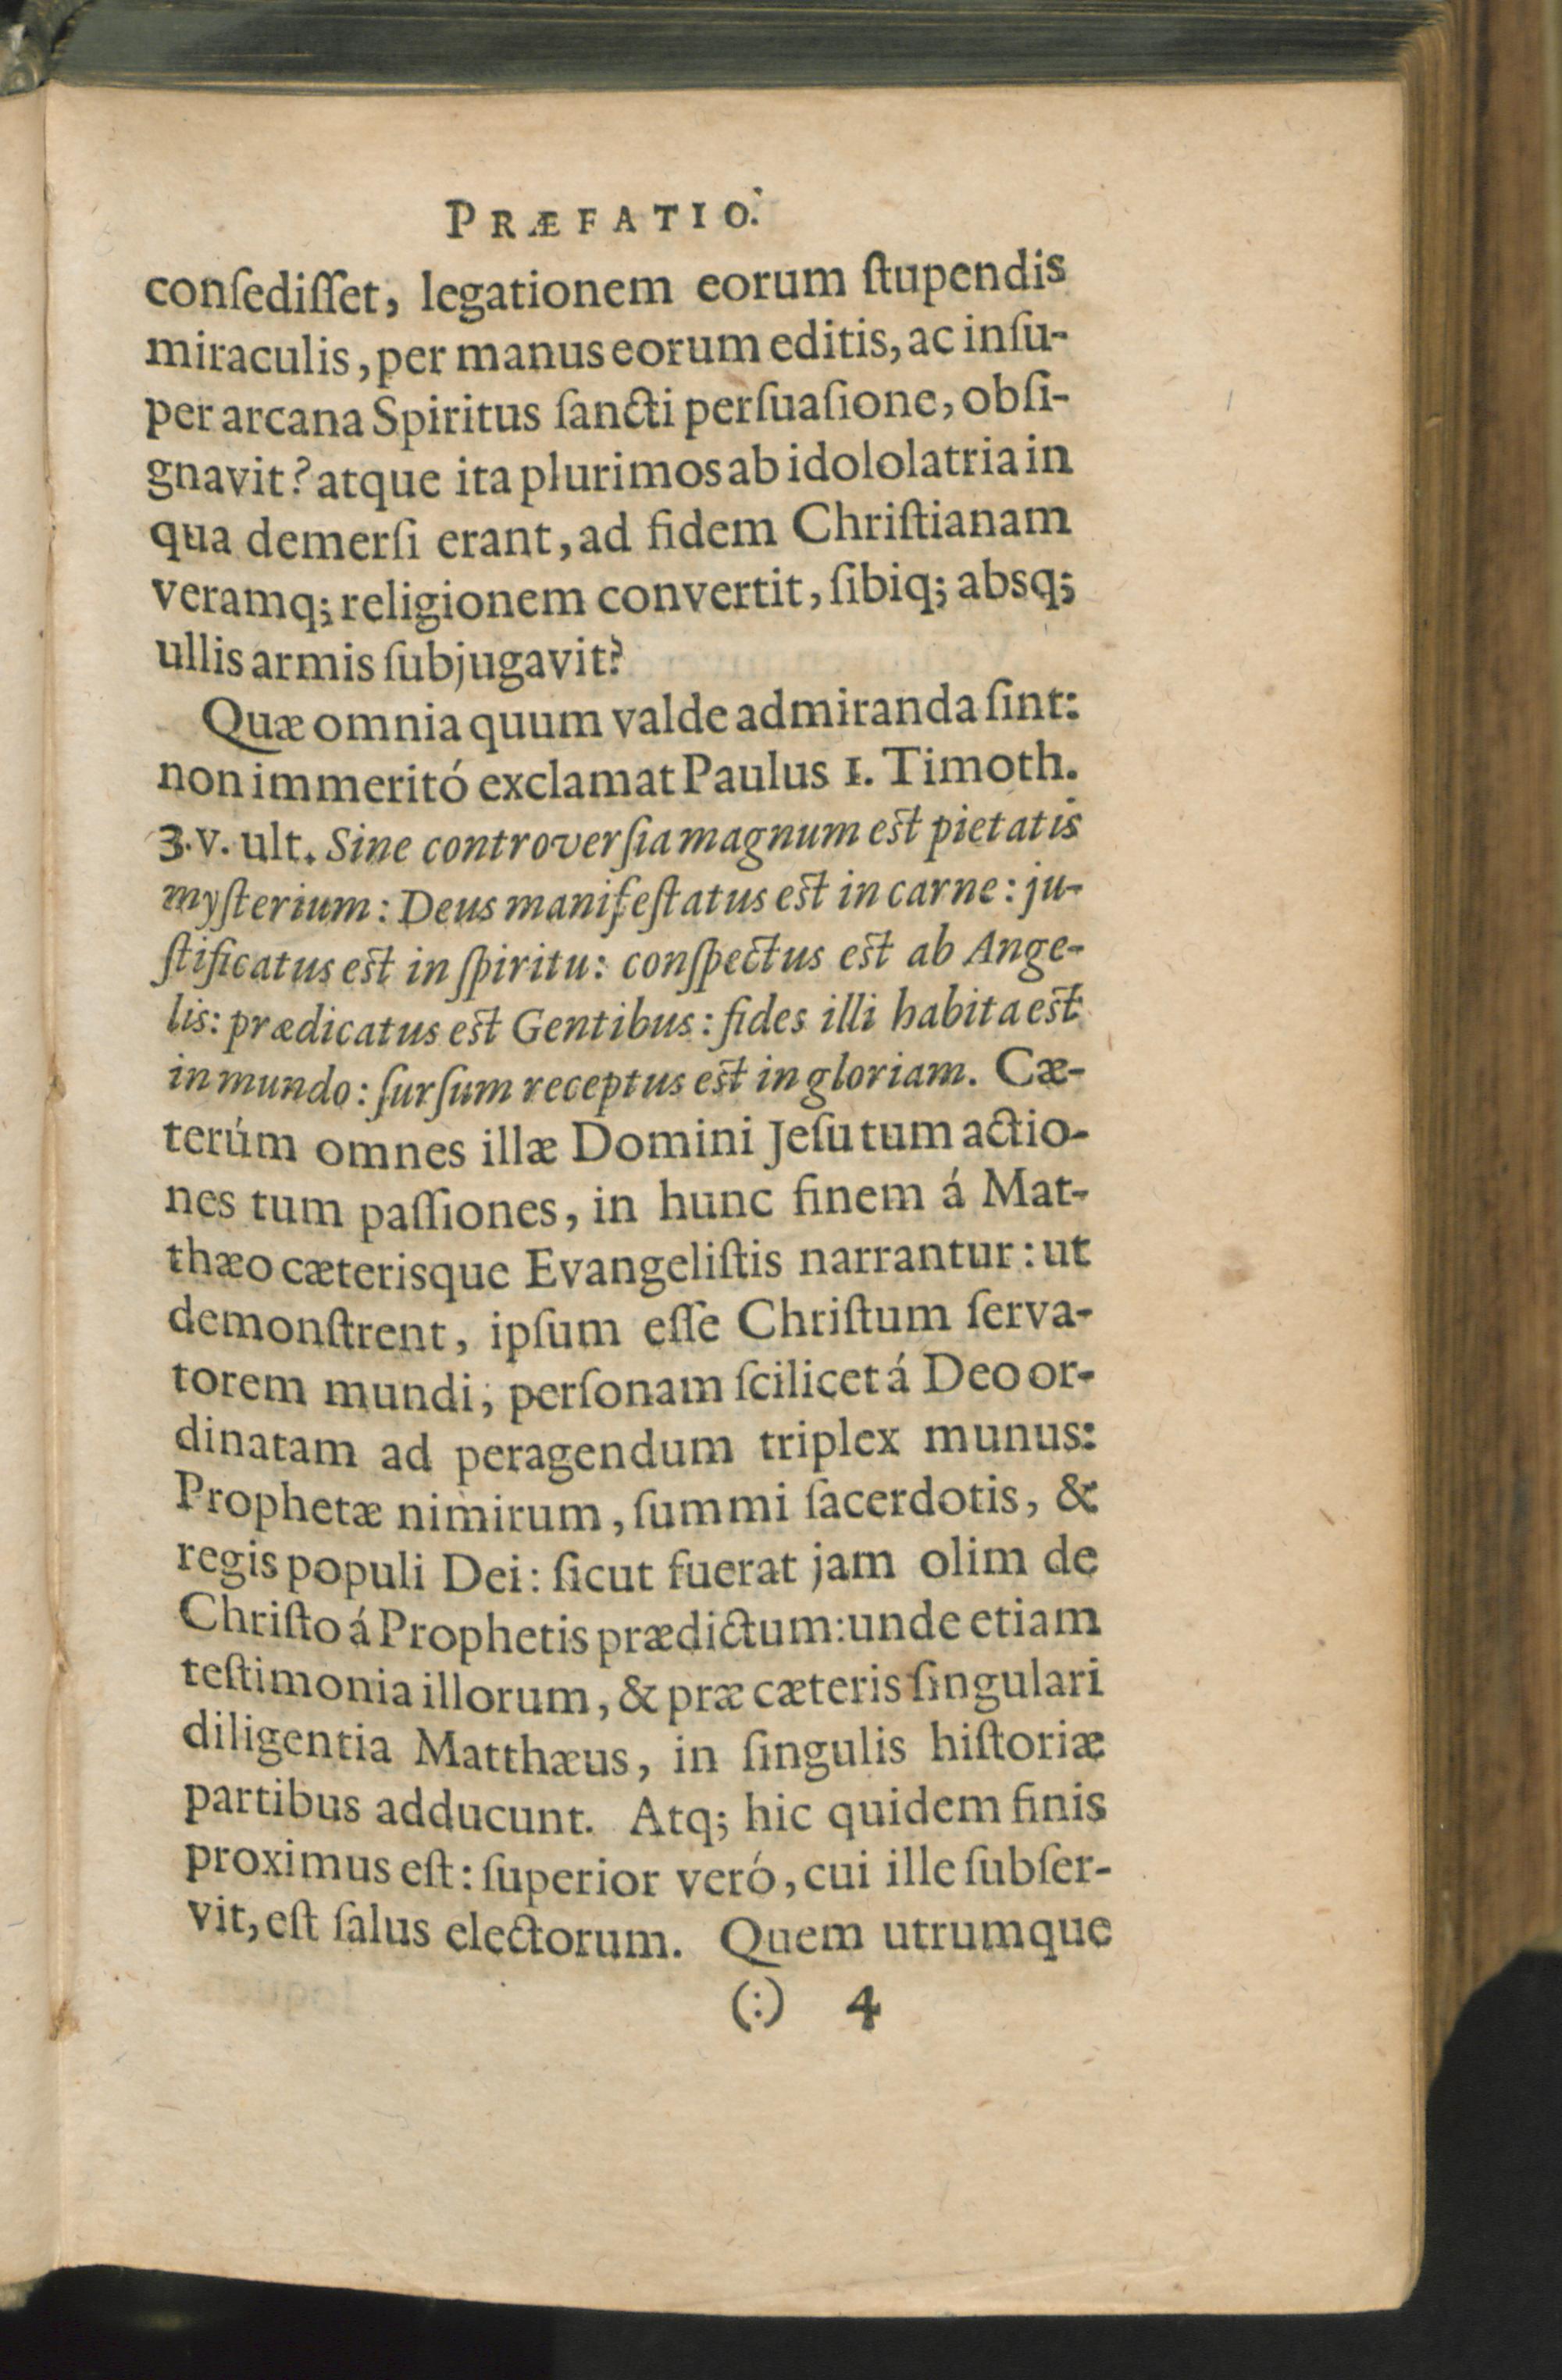 PRÆFATIO.
conſediſſet, legationem eorum ſtupendis
miraculis, per manus eorum editis, ac inſu-
per arcana Spiritus ſancti perſuaſione, obſi-
gnavit? atque ita plurimos ab idololatria in
qua demerſi erant, ad fidem Chriſtianam
veramq; religionem convertit, ſibiq; absq;
ullis armis ſubjugavit?
Quæ omnia quum valde admiranda ſint:
non immeritó exclamat Paulus 1. Timoth.
3. v. ult. Sine controverſia magnum eſt pietatis
myſterium: Deus manifeſtatus eſt in carne: ju-
ſtificatus eſt in ſpiritu: conſpectus eſt ab Ange-
lis: prædicatus eſt Gentibus: fides illi habita eſt
in mundo: ſurſum receptus eſt in gloriam. Cæ-
terúm omnes illæ Domini Jeſu tum actio-
nes tum paſſiones, in hunc finem á Mat-
thæo cæterisque Evangeliſtis narrantur: ut
demonſtrent, ipſum eſſe Chriſtum ſerva-
torem mundi, perſonam ſcilicet á Deo or-
dinatam ad peragendum triplex munus:
Prophetæ nimirum, ſummi ſacerdotis, &
regis populi Dei: ſicut fuerat jam olim de
Chriſto á Prophetis prædictum: unde etiam
teſtimonia illorum, & præ cæteris ſingulari
diligentia Matthæus, in ſingulis hiſtoriæ
partibus adducunt. Atq; hic quidem finis
proximus eſt: ſuperior veró, cui ille ſubſer-
vit, eſt ſalus electorum. Quem utrumque
(:) 4